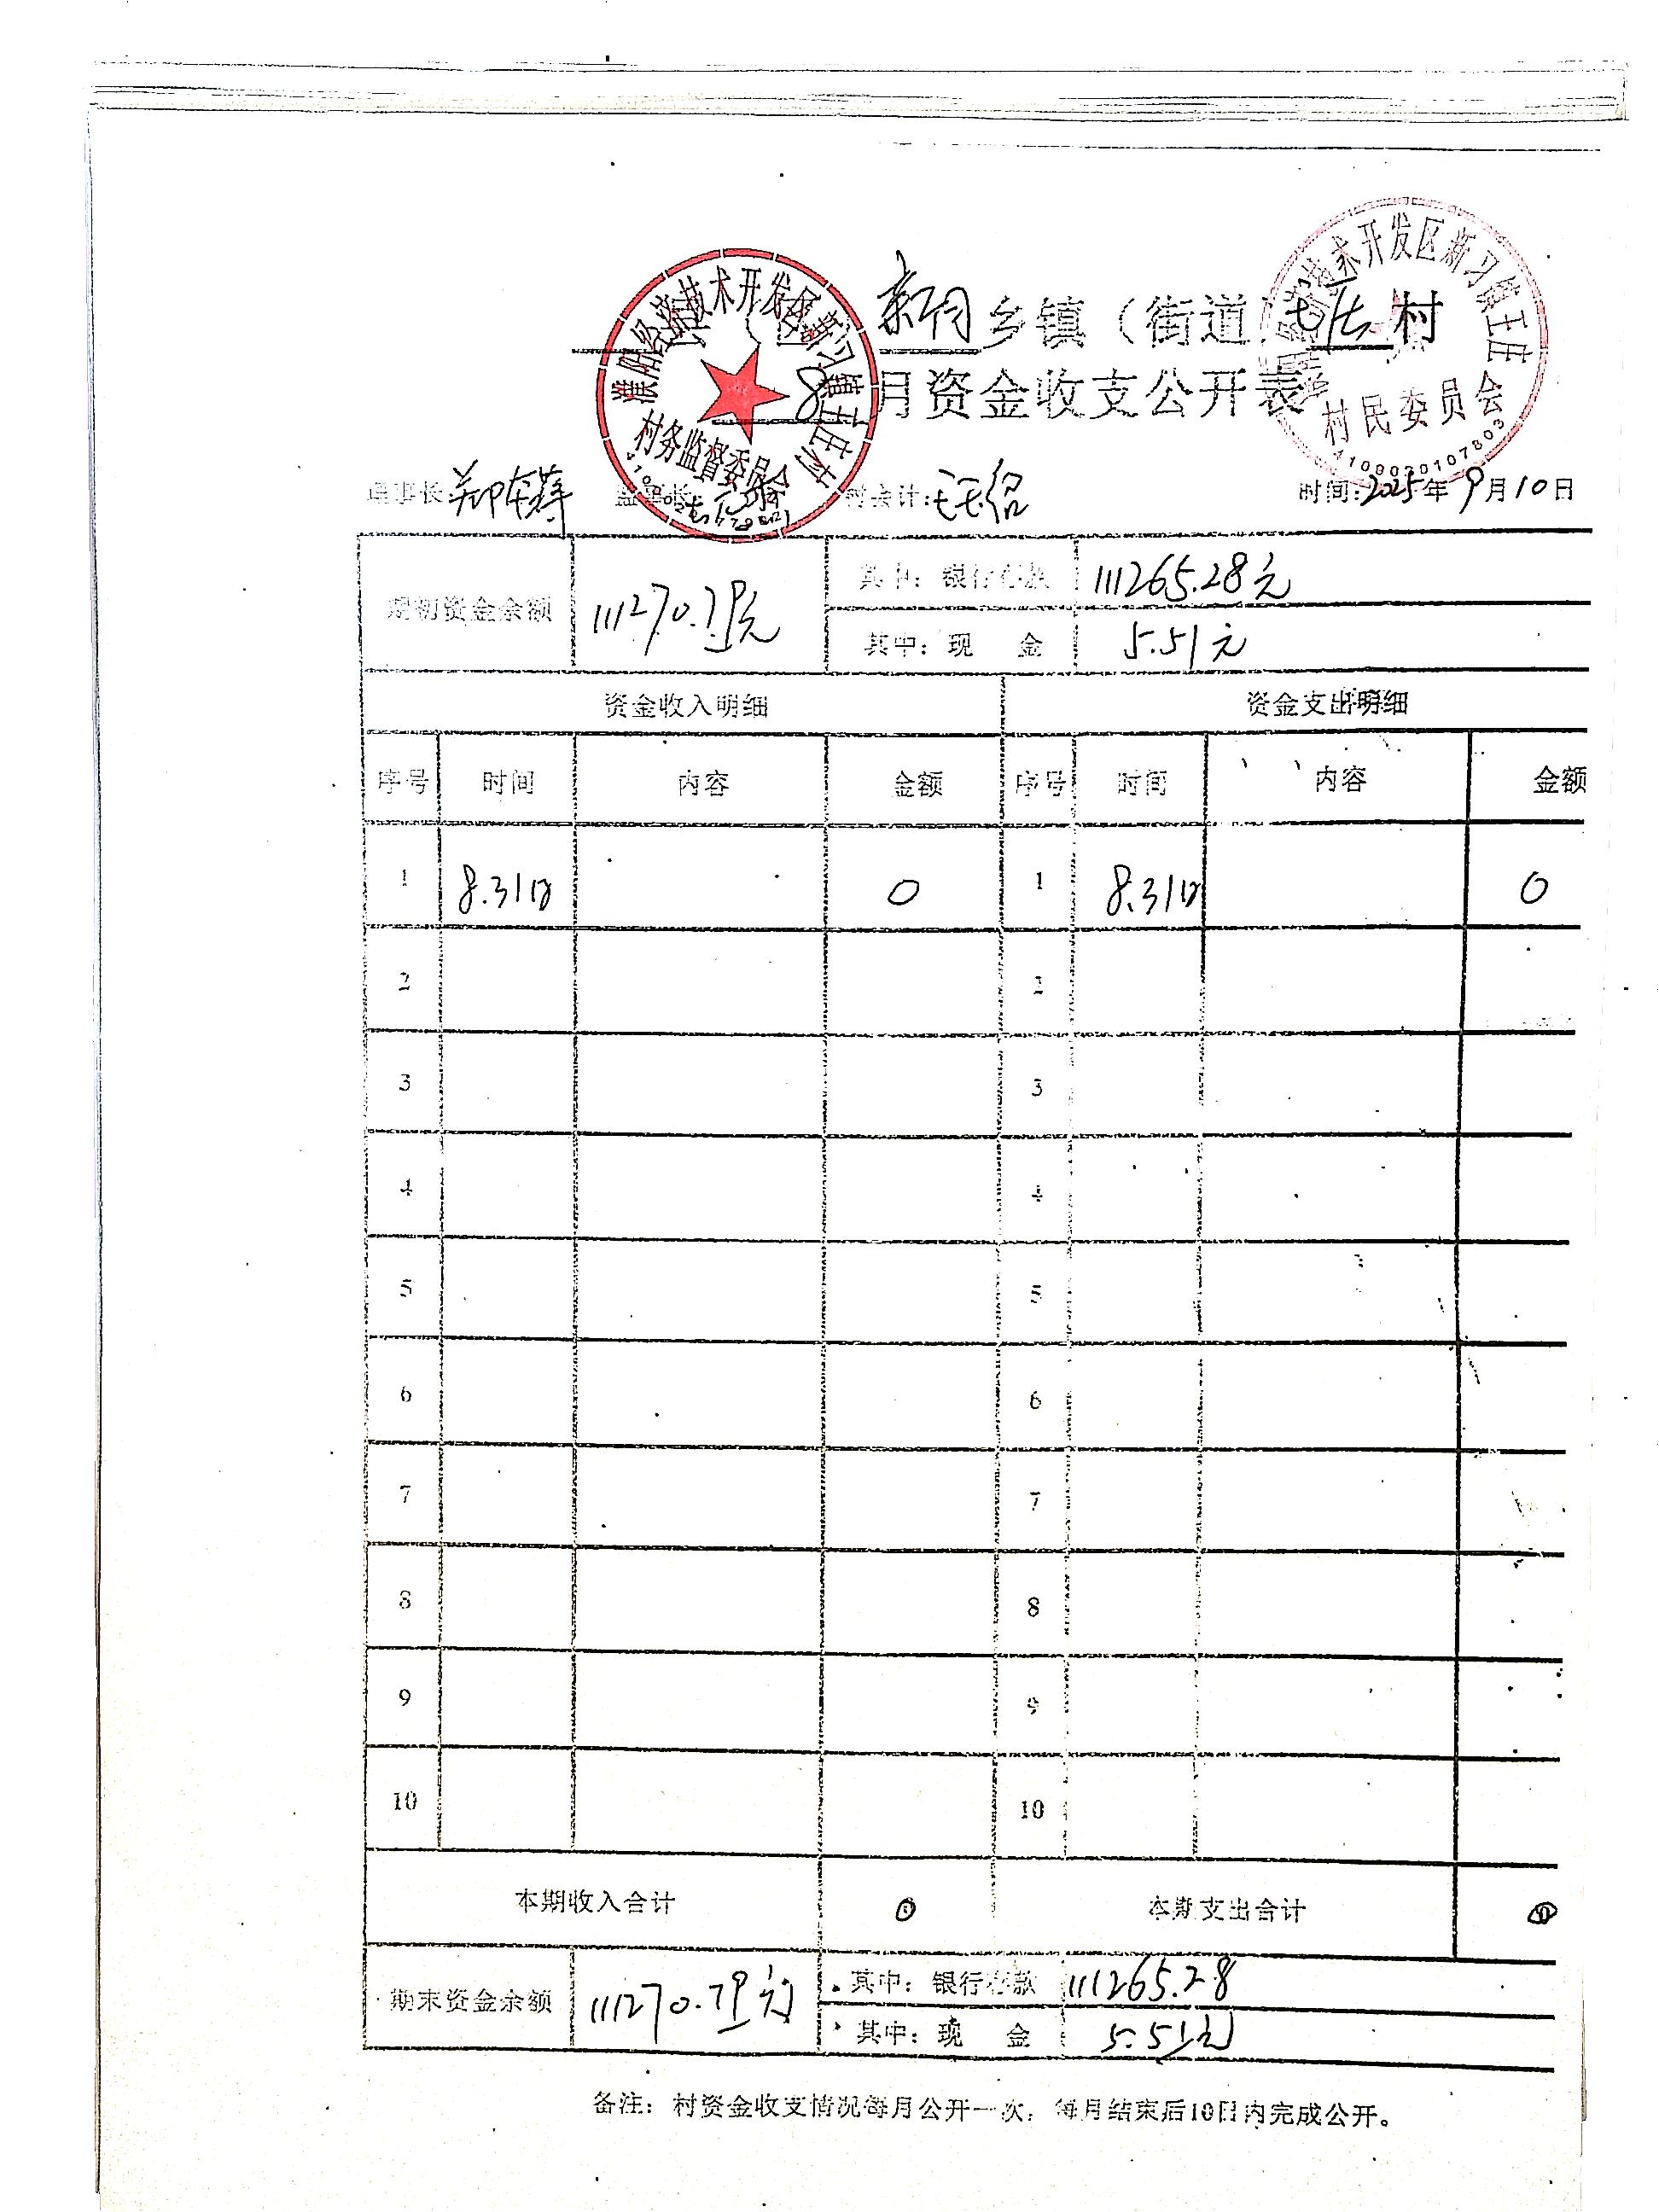 县（区）新习乡镇（街道）王庄村
8月资金收支公开表
濮阳经济技术开发区新习镇王庄村
村务监督委员会
技术开发区新习镇王庄
村民委员会
4109020107803
理事长: 监事长: 村会计: 时间:2025年9月10日
期初资金余额 111270.79元 其中：银行存款 111265.28元
其中：现 金 5.51元
资金收入明细 资金支出明细
序号 时间 内容 金额 序号 时间 内容 金额
1 8.31日 0 1 8.31日 0
2 2
3 3
4 4
5 5
6 6
7 7
8 8
9 9
10 10
本期收入合计 0 本期支出合计 0
期末资金余额 111270.79元 其中：银行存款 111265.28
其中：现 金 5.51元
备注：村资金收支情况每月公开一次，每月结束后10日内完成公开。